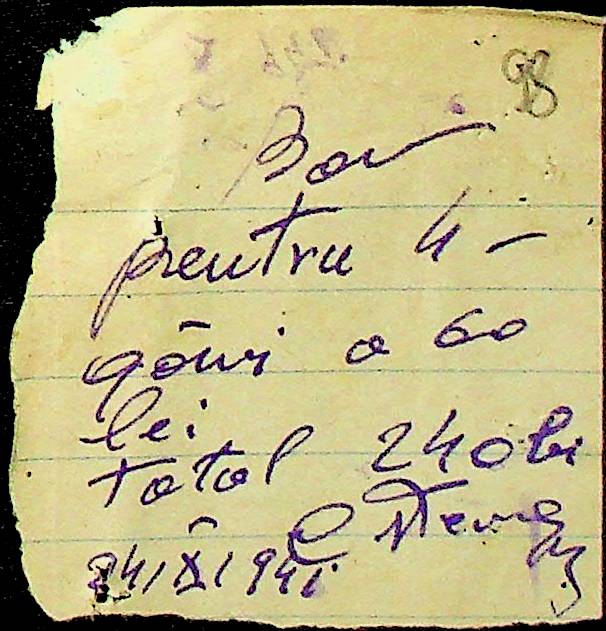 98
Bon
pentru 4 -
găini a 60
lei
total 240 lei
24/X/1941